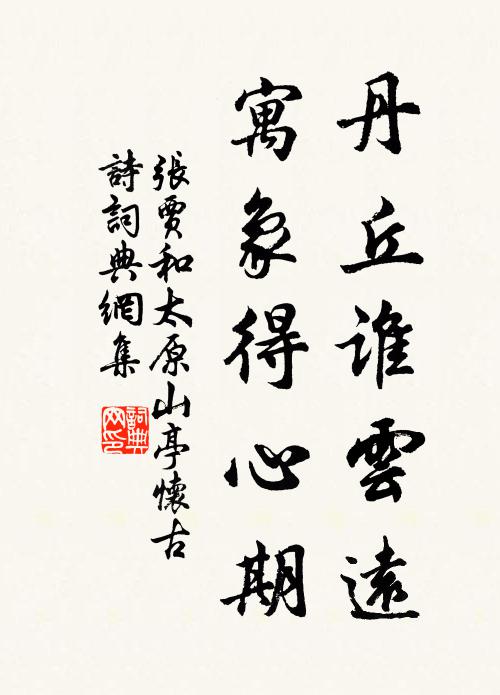 丹丘誰雲遠
寓象得心期
張賈和太原山亭懷古
詩詞典網集
詞典网印